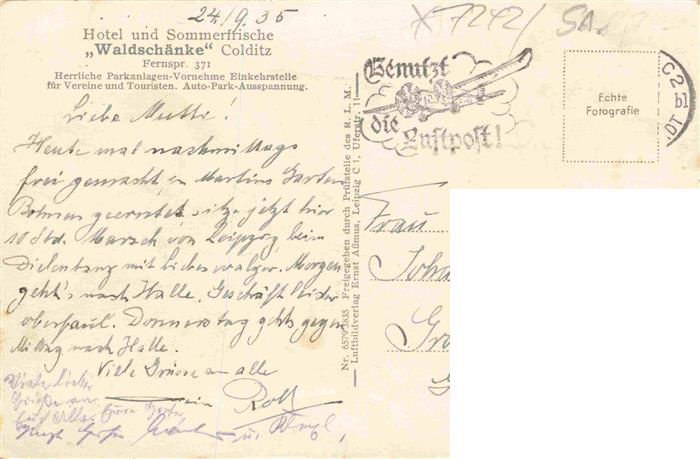 24/9.35
Hotel und Sommerfrische
„Waldschänke“ Colditz
Fernspr. 371
Herrliche Parkanlagen-Vornehme Einkehrstelle
für Vereine und Touristen. Auto-Park-Ausspannung.
Liebe Mutti!
Heute mal nachmittags
frei gemacht in Martins Garten
Bohnen geerntet, sitze jetzt hier
10 Std. Marsch von Leipzig beim
Dielentanz mit
Morgen
geht's nach Halle. Geschäft leider
oberfaul. Donnerstag gehts gegen
Mittag nach Halle.
Viele Grüsse an alle
Rolf
Viele liebe
Grüße an
Euch Alle
u.
Nr. 65793835 Freigegeben durch Prüfstelle des R. L. M.
Luftbildverlag Ernst Aßmus, Leipzig C 1, Uferstr. 11
Benutzt
die Luftpost!
C2
bl
X7242/
Echte
Fotografie
Frau